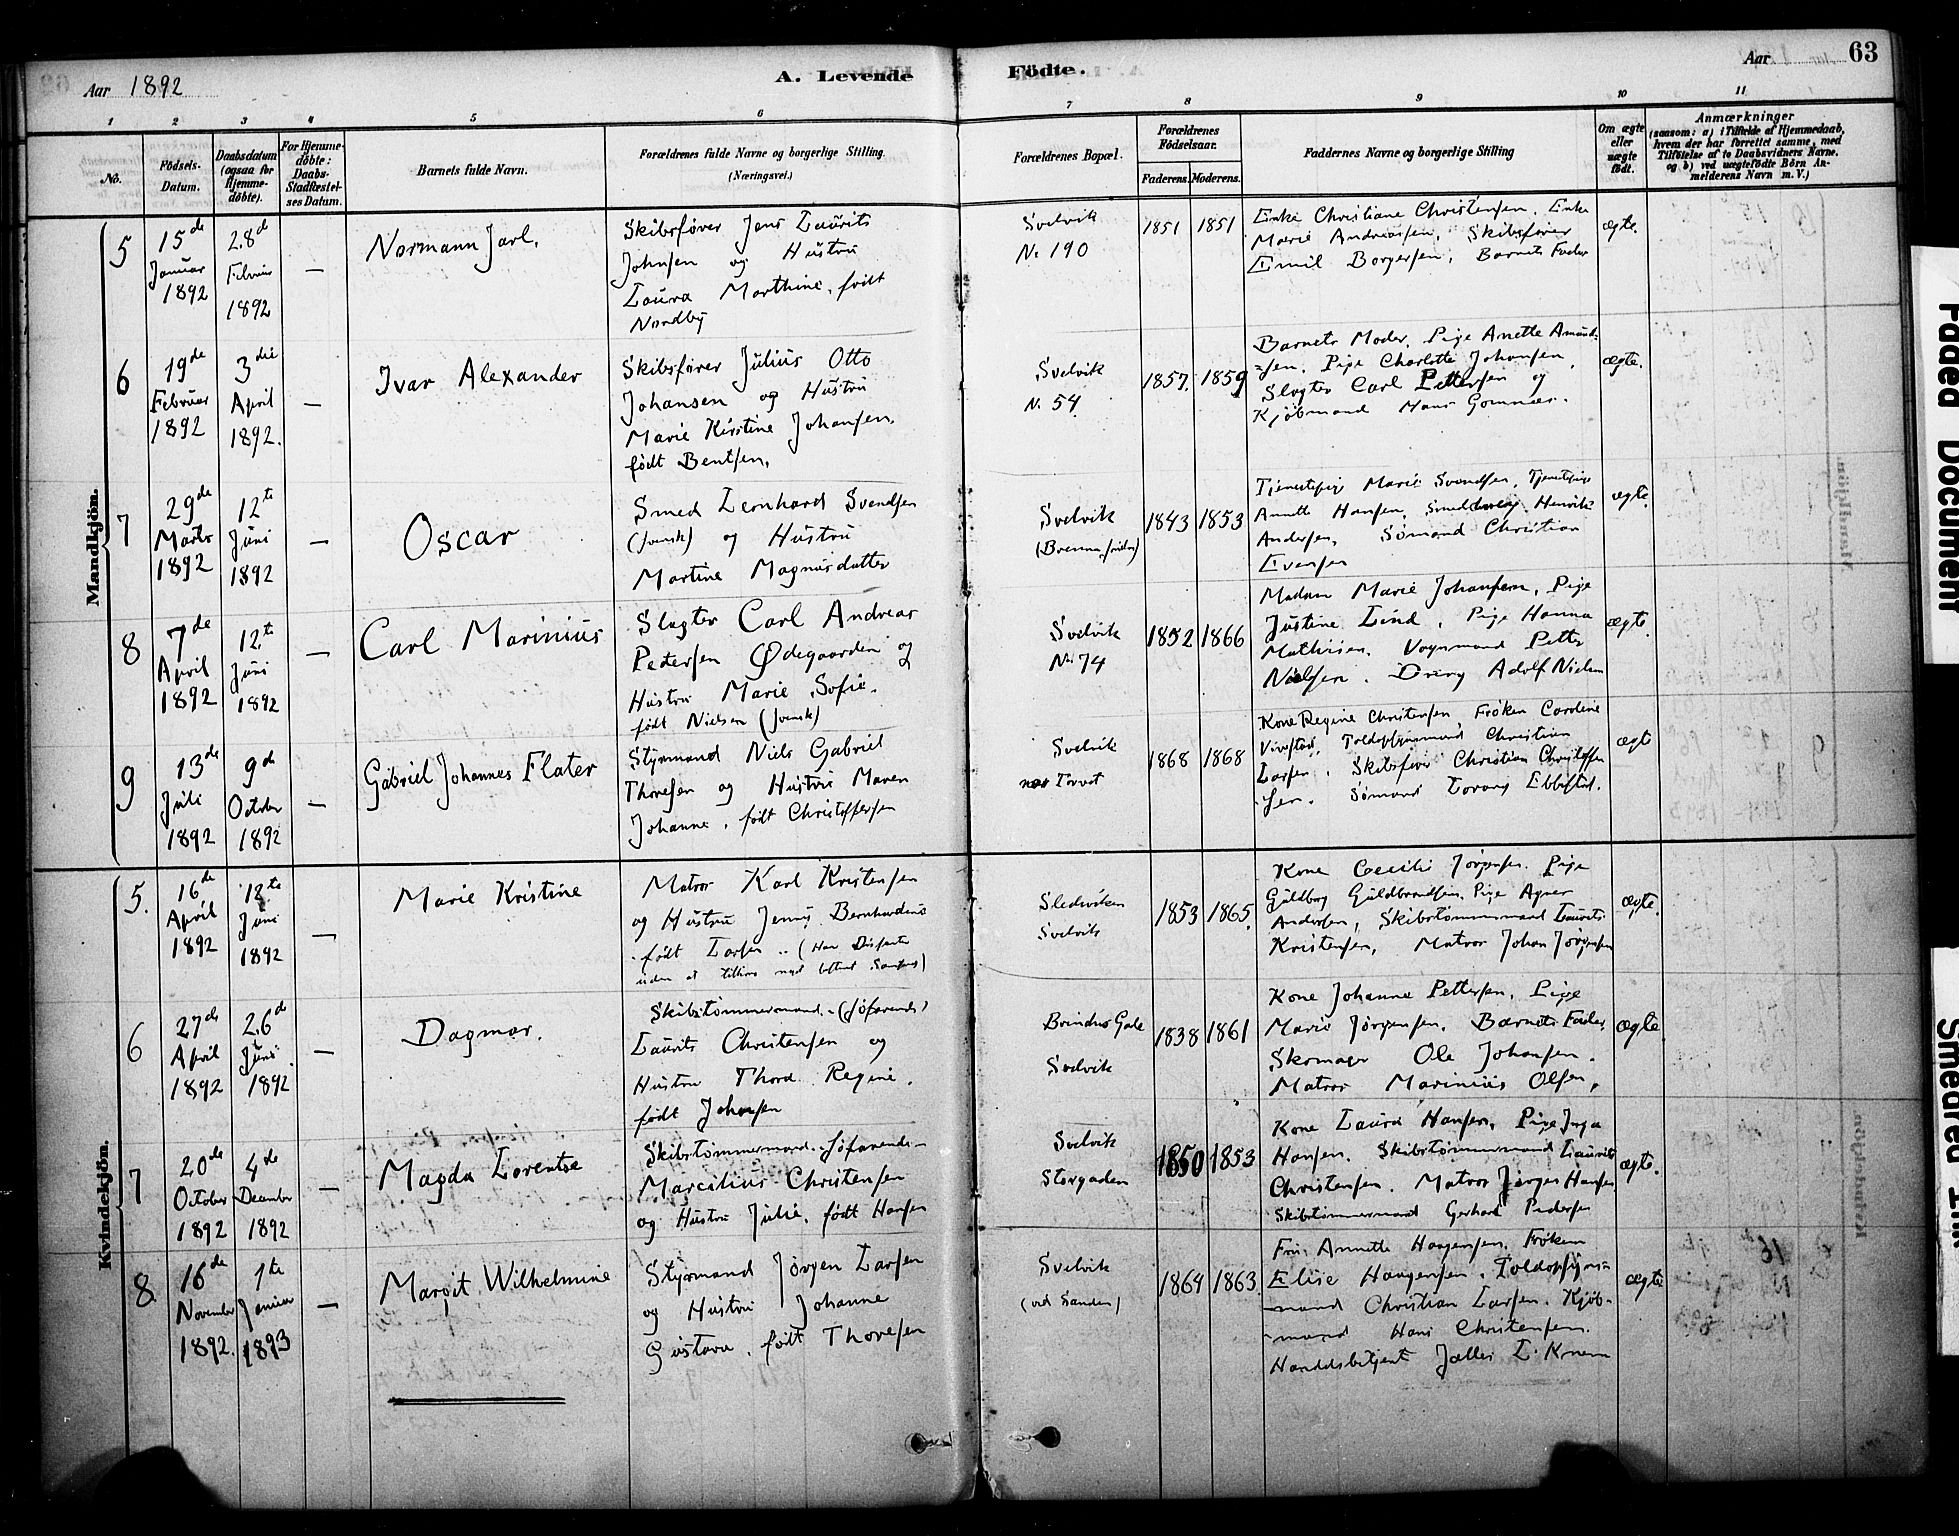 Aar 1892
A. Levende Fødte.
Aar
63
1 2 3 4 5 6 7 8 9 10 11
No.
Fødsels-
Datum.
Daabsdatum
(ogsaa for
Hjemme-
døbte).
For Hjemme-
døbte:
Daabs-
Stadfæstel-
ses Datum.
Barnets fulde Navn.
Forældrenes fulde Navne og borgerlige Stilling.
(Næringsvei.)
Forældrenes Bopæl.
Forældrenes
Fødselsaar.
Faderens. Moderens.
Faddernes Navne og borgerlige Stilling
Om ægte
eller
uægte
født.
Anmærkninger
(saasom: a) i Tilfælde af Hjemmedaab,
hvem der har forrettet samme, med
Tilføielse af to Daabsvidners Navne.
og b) ved uægtefødte Börn An-
melderens Navn m. V.)
Mandkjön.
5
15de
Januar
1892
28de
Februar
1892
—
Normann Jarl.
Skibsfører Jens Laurits
Johnsen og Hustru
Laura Marthine, født
Nordby
Svelvik
No 190
1851 1851
Enke Christiane Christensen, Enke
Marie Andreassen, Skibsfører
Emil Borgersen, Barnets Fader
ægte.
6
19de
Februar
1892
3die
April
1892.
—
Ivar Alexander
Skibsfører Julius Otto
Johansen og Hustru
Marie Kirstine Johansen,
født Bentsen,
Svelvik
N. 54
1857. 1859
Barnets Moder, Pige Anette Amund-
sen, Pige Charlotte Johansen,
Slagter Carl Pettersen og
Kjøbmand Hans
ægte.
7
29de
Marts
1892
12te
Juni
1892
—
Oscar
Smed Leonhard Svendsen
(svensk) og Hustru
Martine Magnusdatter
Svelvik
1843 1853
Tjenestepige Marie Svendsen, Tjenestepige
Annette Hansen, Henrik
Andersen, Sømand Christian
Evensen
ægte.
8
7de
April
1892
12te
Juni
1892
—
Carl Marinius
Slagter Carl Andreas
Pedersen Ødegaarden og
Hustru Marie Sofie,
født Nielsen (svensk)
Svelvik
No 74
1852 1866
Madam Marie Johansen, Pige
Justine Lind, Pige Hanna
Mathisen. Vognmand Petter
Nielsen. Dreng Adolf Nielsen
ægte.
9
13de
Juli
1892
9de
October
1892
—
Gabriel Johannes Flater
Styrmand Niels Gabriel
Thoresen og Hustru Maren
Johanne, født Christoffersen
Svelvik
1868 1868
Kone Regine Christensen, Frøken Caroline
Toldopsynsmand Christian
Larsen, Skibsfører Christian Christoffer-
sen. Sømand
ægte
Kvindekjön.
5.
16de
April
1892
12te
Juni
1892
—
Marie Kristine
Matros Karl Kristensen
og Hustru Jenny Bernhardine
født Larsen .. (Han Dissenter
uden at tilhøre
Svelvik
1853 1865.
Kone Cecilie Jørgensen. Pige
Guldborg Guldbrandsen, Pige Agnes
Andersen, Skibstømmermand Laurits
Kristensen, Matros Johan Jørgensen
ægte.
6
27de
April
1892
26de
Juni
1892
—
Dagmar.
Skibstømmermand (søfarende)
Laurits Christensen og
Hustru Thord. Regine,
født Johnsen
Svelvik
1838 1861
Kone Johanne Pettersen, Pige
Marie Jørgensen. Barnets Fader,
Skomager Ole Johansen.
Matros Marinius Olsen,
ægte
7
20de
October
1892
4de
December
1892
—
Magda Lorentse
Skibstømmermand. søfarende
Marcilius Christensen
og Hustru Julie, født Hansen
Svelvik
Storgaden
1850 1853
Kone Laura Hansen, Pige Inga
Hansen. Skibstømmermand Laurits
Christensen. Matros Jørgen Hansen
Skibstømmermand Gerhard Pedersen
ægte.
8
16de
November
1892.
1te
Januar
1893
—
Margit Wilhelmine
Styrmand Jørgen Larsen
og Hustru Johanne
Gustava, født Thoresen
Svelvik
(ved Sanden)
1864 1863
Fru Annette Haagensen, Frøken
Elise Haagensen, Toldopsyns-
mand Christian Larsen. Kjøb-
mand Hans Christensen.
Handelsbetjent
ægte
Faded Document
Smeared Ink